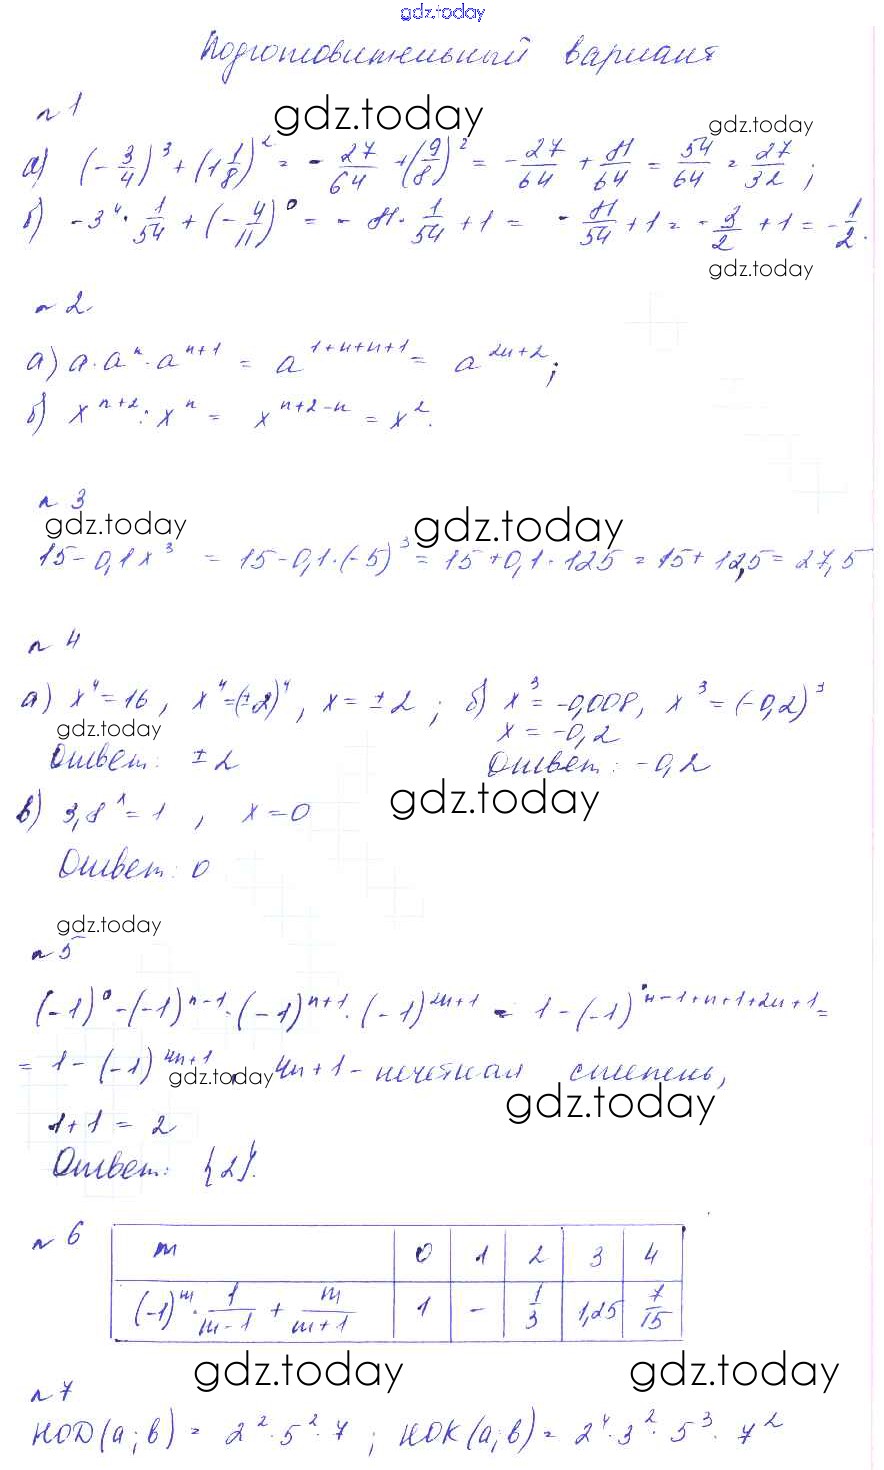 gdz.today
Подготовительный вариант
n 1
gdz.today
gdz.today
а) (-3/4)^3 + (1 1/8)^2 = -27/64 + (9/8)^2 = -27/64 + 81/64 = 54/64 = 27/32 ;
б) -3^4 · 1/54 + (-4/11)^0 = -81 · 1/54 + 1 = -81/54 + 1 = -3/2 + 1 = -1/2.
gdz.today
n 2
а) a · a^n · a^(n+1) = a^(1+n+n+1) = a^(2n+2);
б) x^(n+2) : x^n = x^(n+2-n) = x^2.
n 3
gdz.today gdz.today
15 - 0,1x^3 = 15 - 0,1 · (-5)^3 = 15 + 0,1 · 125 = 15 + 12,5 = 27,5
n 4
а) x^4 = 16, x^4 = (±2)^4, x = ±2 ; б) x^3 = -0,008, x^3 = (-0,2)^3
gdz.today x = -0,2
Ответ: ±2 Ответ: -0,2
gdz.today
в) 3,8^x = 1 , x = 0
Ответ: 0
gdz.today
n 5
(-1)^0 - (-1)^(n-1) · (-1)^(n+1) · (-1)^(2n+1) = 1 - (-1)^(n-1+n+1+2n+1) =
= 1 - (-1)^(4n+1) 4n + 1 - нечетная степень,
gdz.today
gdz.today
1 + 1 = 2
Ответ: {2}.
n 6
m 0 1 2 3 4
(-1)^m · 1/(m-1) + m/(m+1) 1 - 1/3 1,25 7/15
gdz.today gdz.today
n 7
НОД(a;b) = 2^2 · 5^2 · 7 ; НОК(a;b) = 2^4 · 3^2 · 5^3 · 7^2